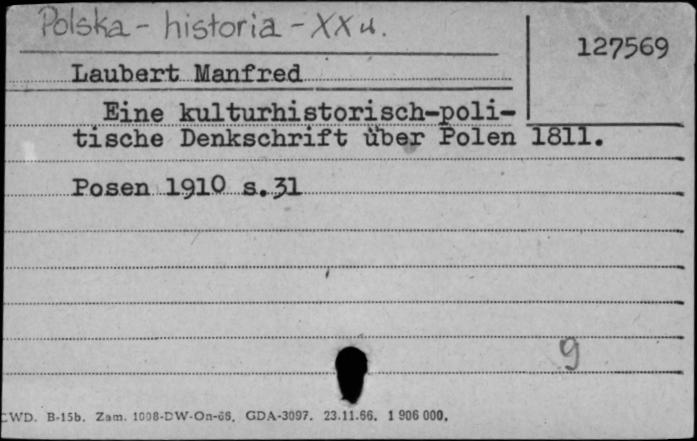 Polska - historia - XX w.
127569
Laubert Manfred
Eine kulturhistorisch-poli-
tische Denkschrift über Polen 1811.
Posen 1910 s.31
9
CWD. B-15b. Zam. 1008-DW-On-66. GDA-3097. 23.11.66. 1 906 000.